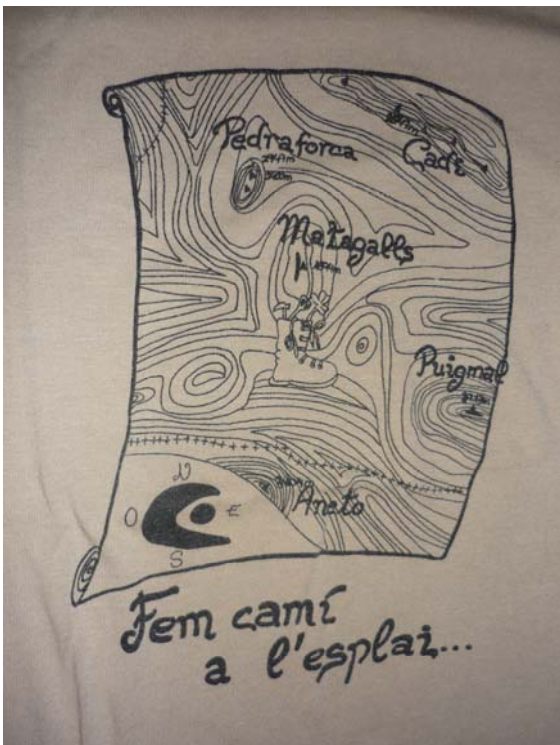 Pedraforca
Cadí
Matagalls
Puigmal
Aneto
N
O
E
S
Fem camí
a l'esplai...